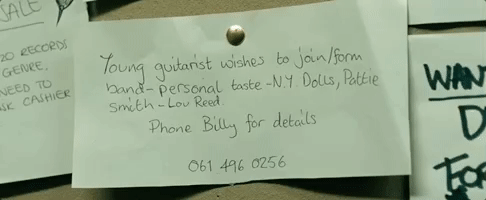 SALE
20 RECORDS
GENRE.
NEED TO
ASK CASHIER
Young guitarist wishes to join/form
band - personal taste - N.Y Dolls, Pattie
Smith - Lou Reed.
Phone Billy for details
061 496 0256
WAN
D
FO